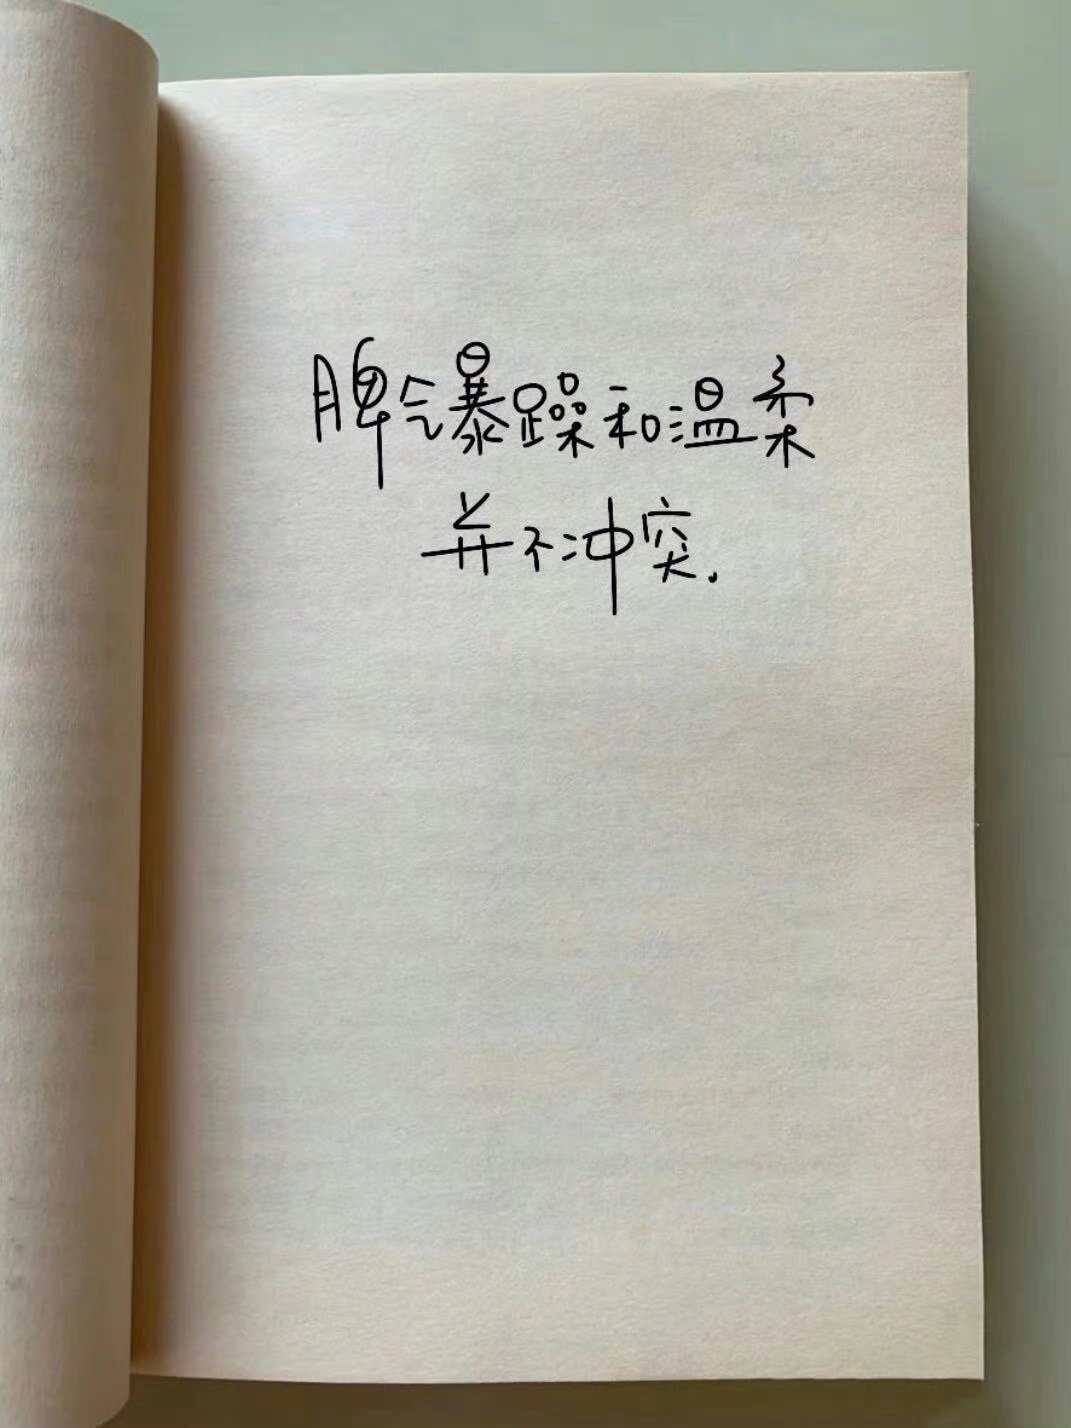 脾气暴躁和温柔
并不冲突.